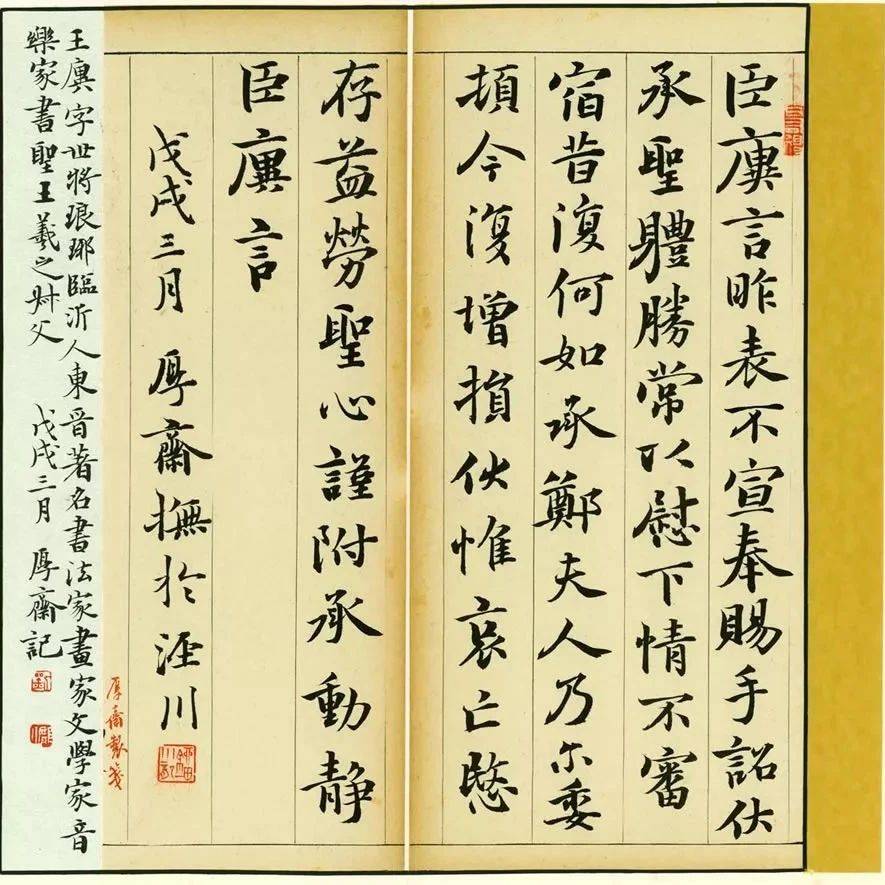 臣廙言昨表不宣奉賜手詔伏
承聖體勝常以慰下情不審
宿昔復何如承鄭夫人乃尓委
頓今復增損伏惟哀亡愍
存益勞聖心謹附承動静
臣廙言
戊戌三月 厚齋撫於涇川
厚齋製箋
王廙字世將琅琊臨沂人東晉著名書法家畫家文學家音
樂家書聖王羲之叔父 戊戌三月 厚齋記